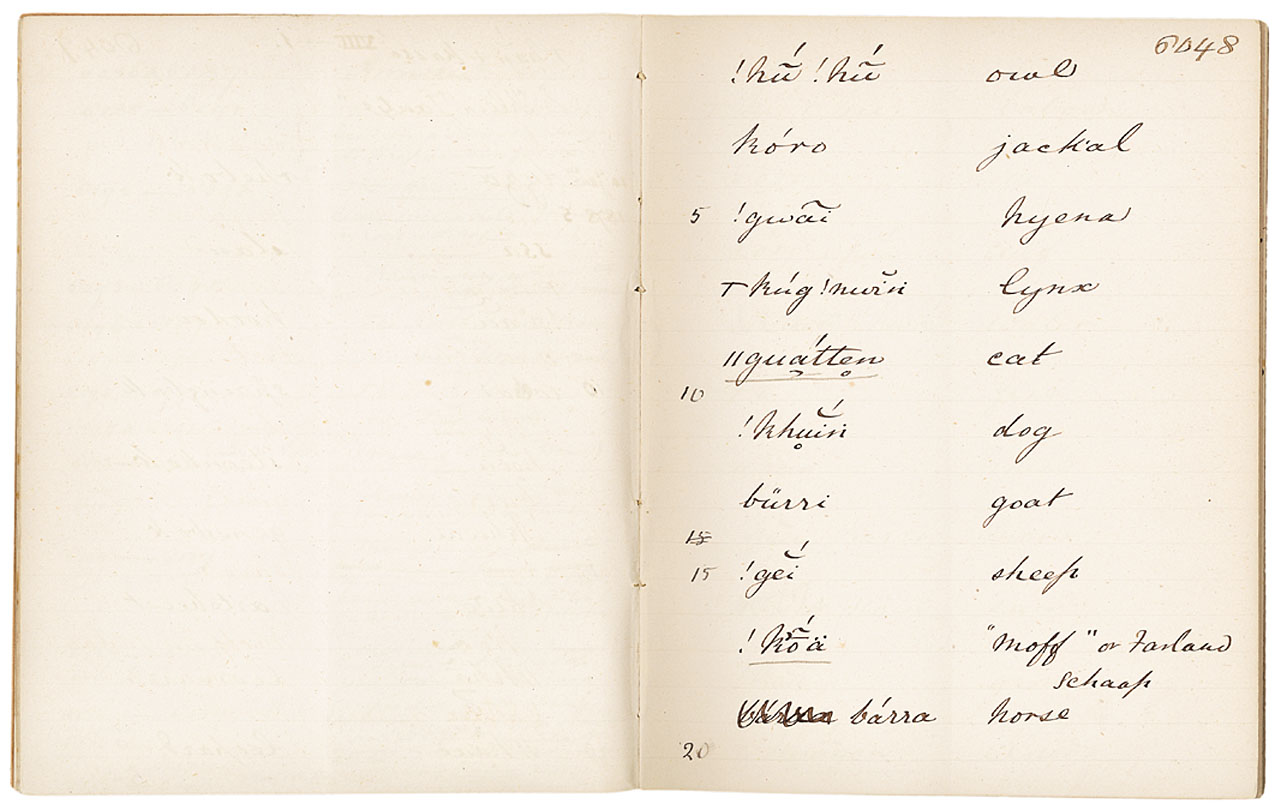 6048
!hū́ !hū́ owl
kóro jackal
5 !gwãi hyena
kúg!nwĭn lynx
ǁguátten cat
10
!khwĭń dog
bŭrri goat
15
15 !gĕí sheep
!kõ̆ä "Moff" or Farland
Schaap
bárra horse
20